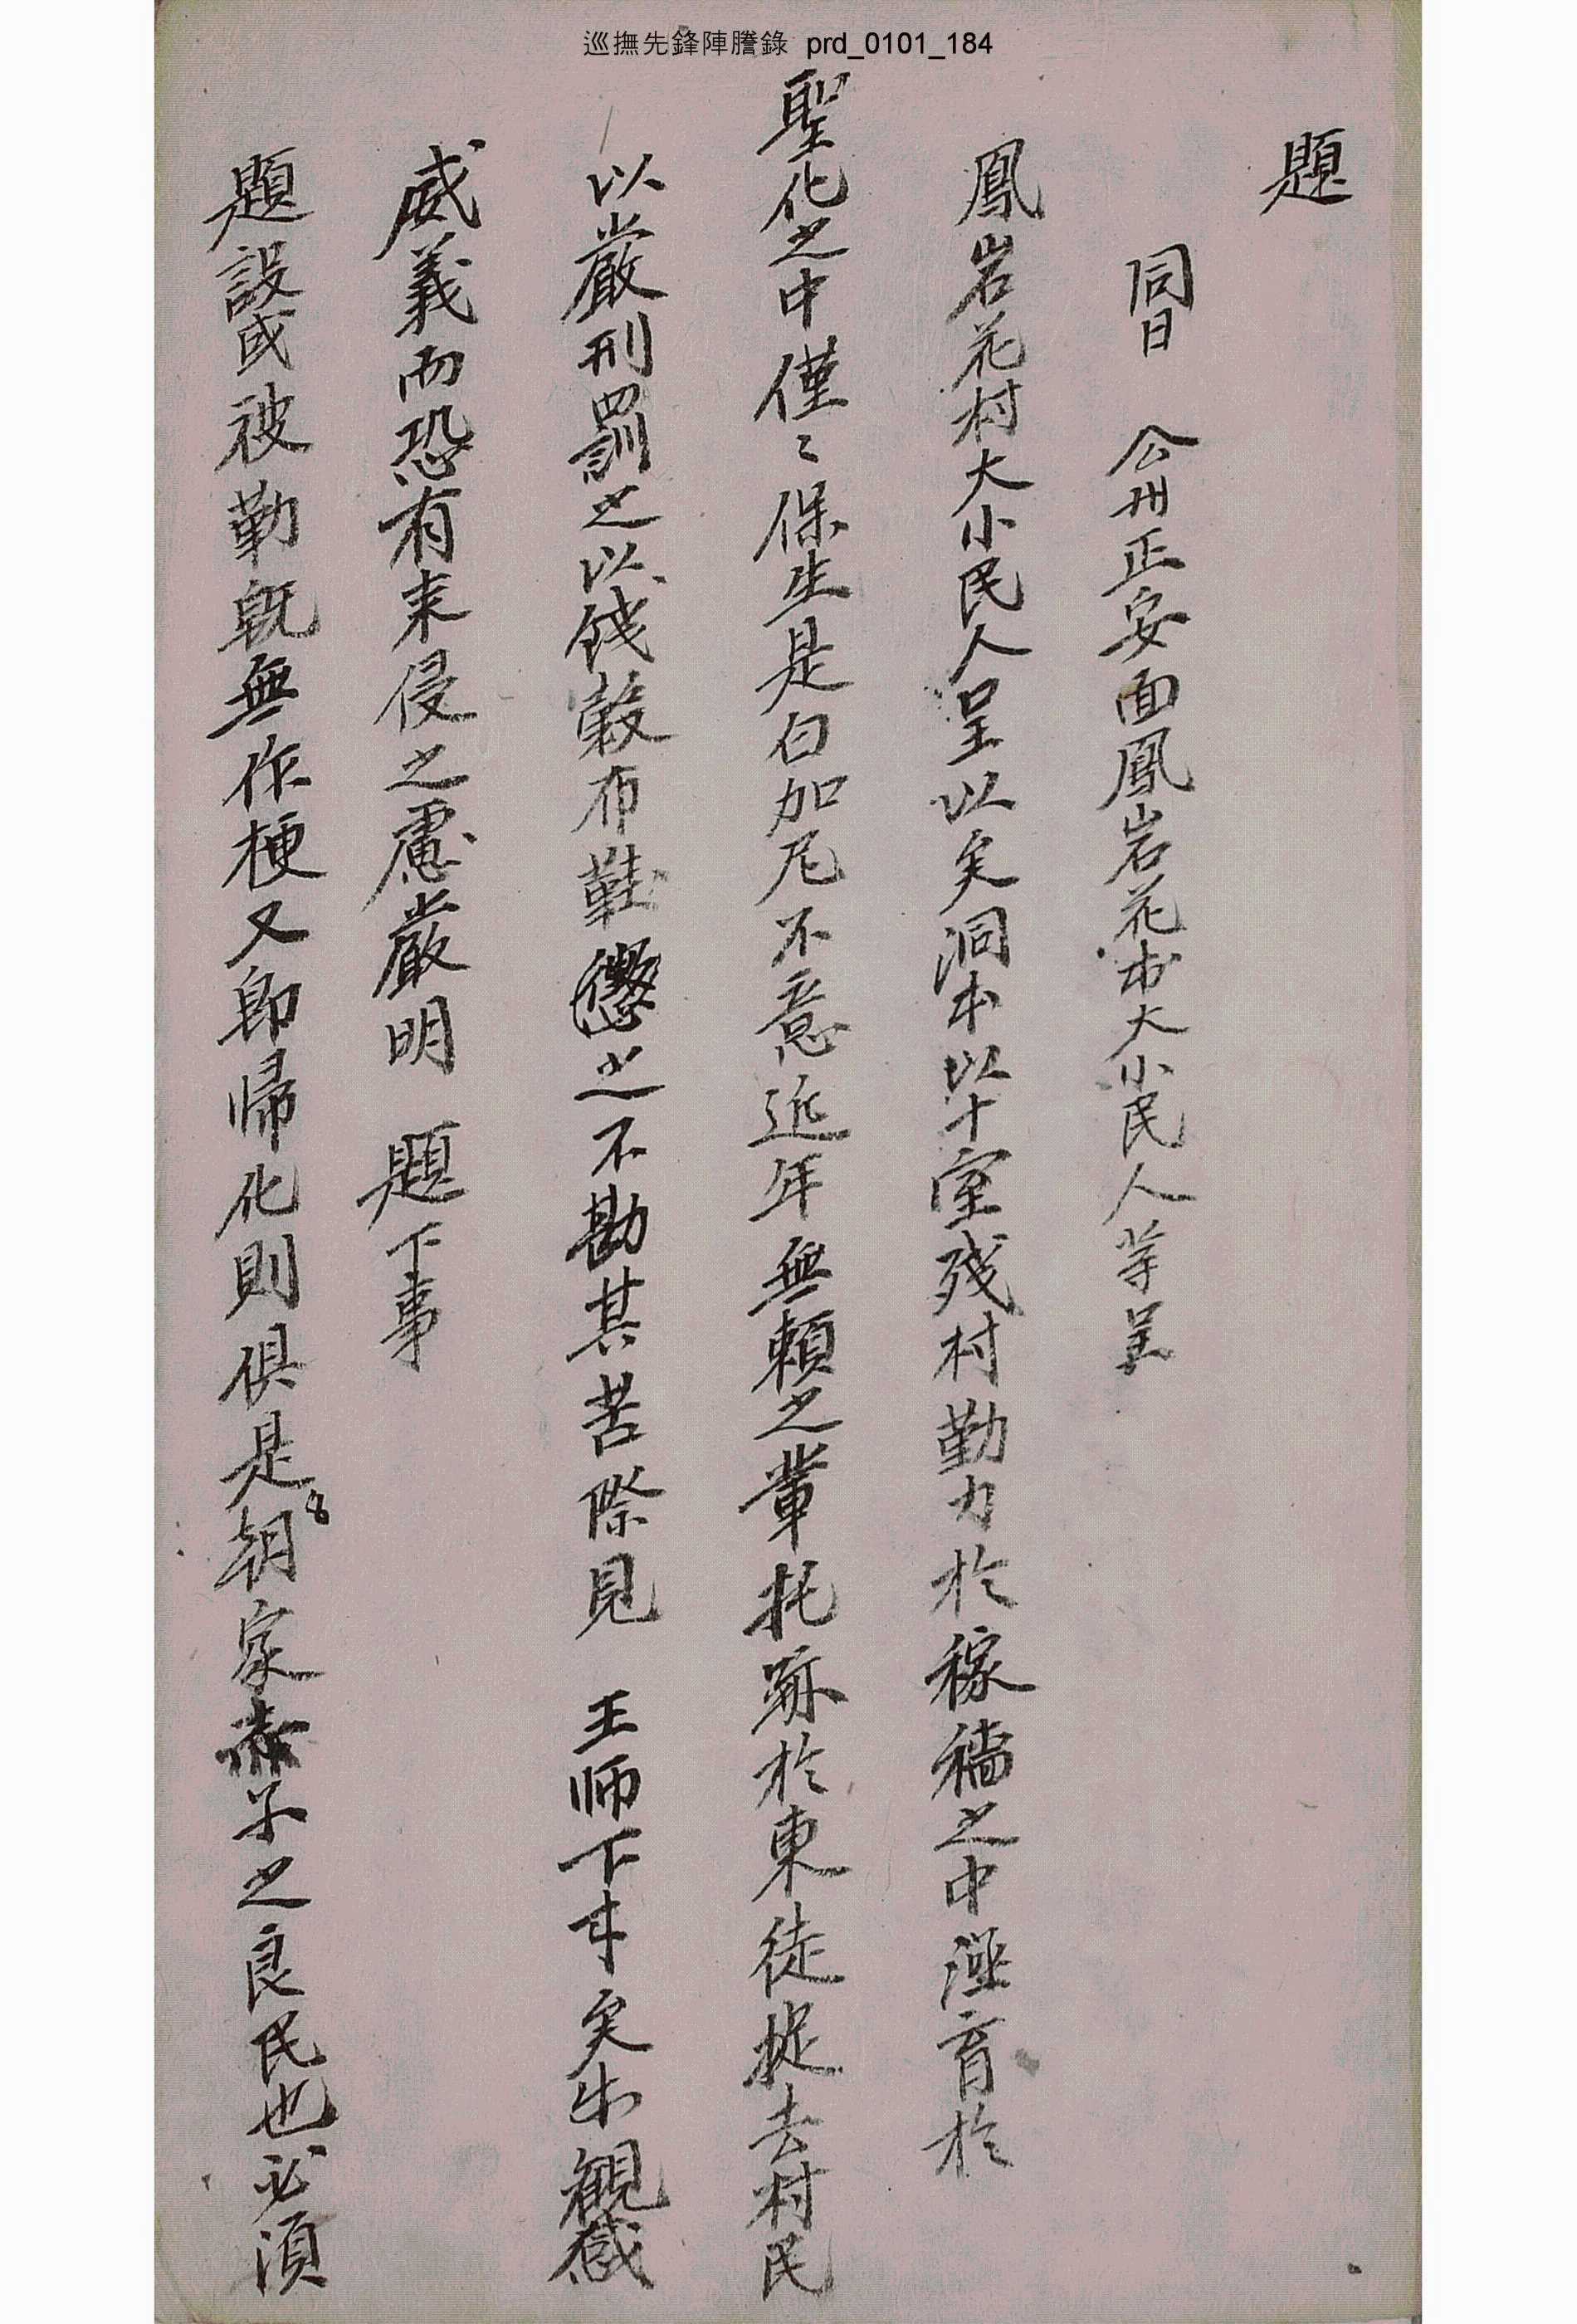 巡撫先鋒陣謄錄 prd_0101_184
題
同日 公州正安面鳳岩花村大小民人等呈
鳳岩花村大小民人呈以矣洞本以十室残村勤力於稼穡之中涵育於
聖化之中僅〻保生是白加尼不意近年無賴之輩托跡於東徒捉去村民
以嚴刑罰之以錢穀布鞋懲之不勘其苦際見 王師下車矣牛觀感
威義而恐有来侵之慮嚴明 題下事
題設或被勒旣無作梗又卽帰化則俱是朝家赤子之良民也必須